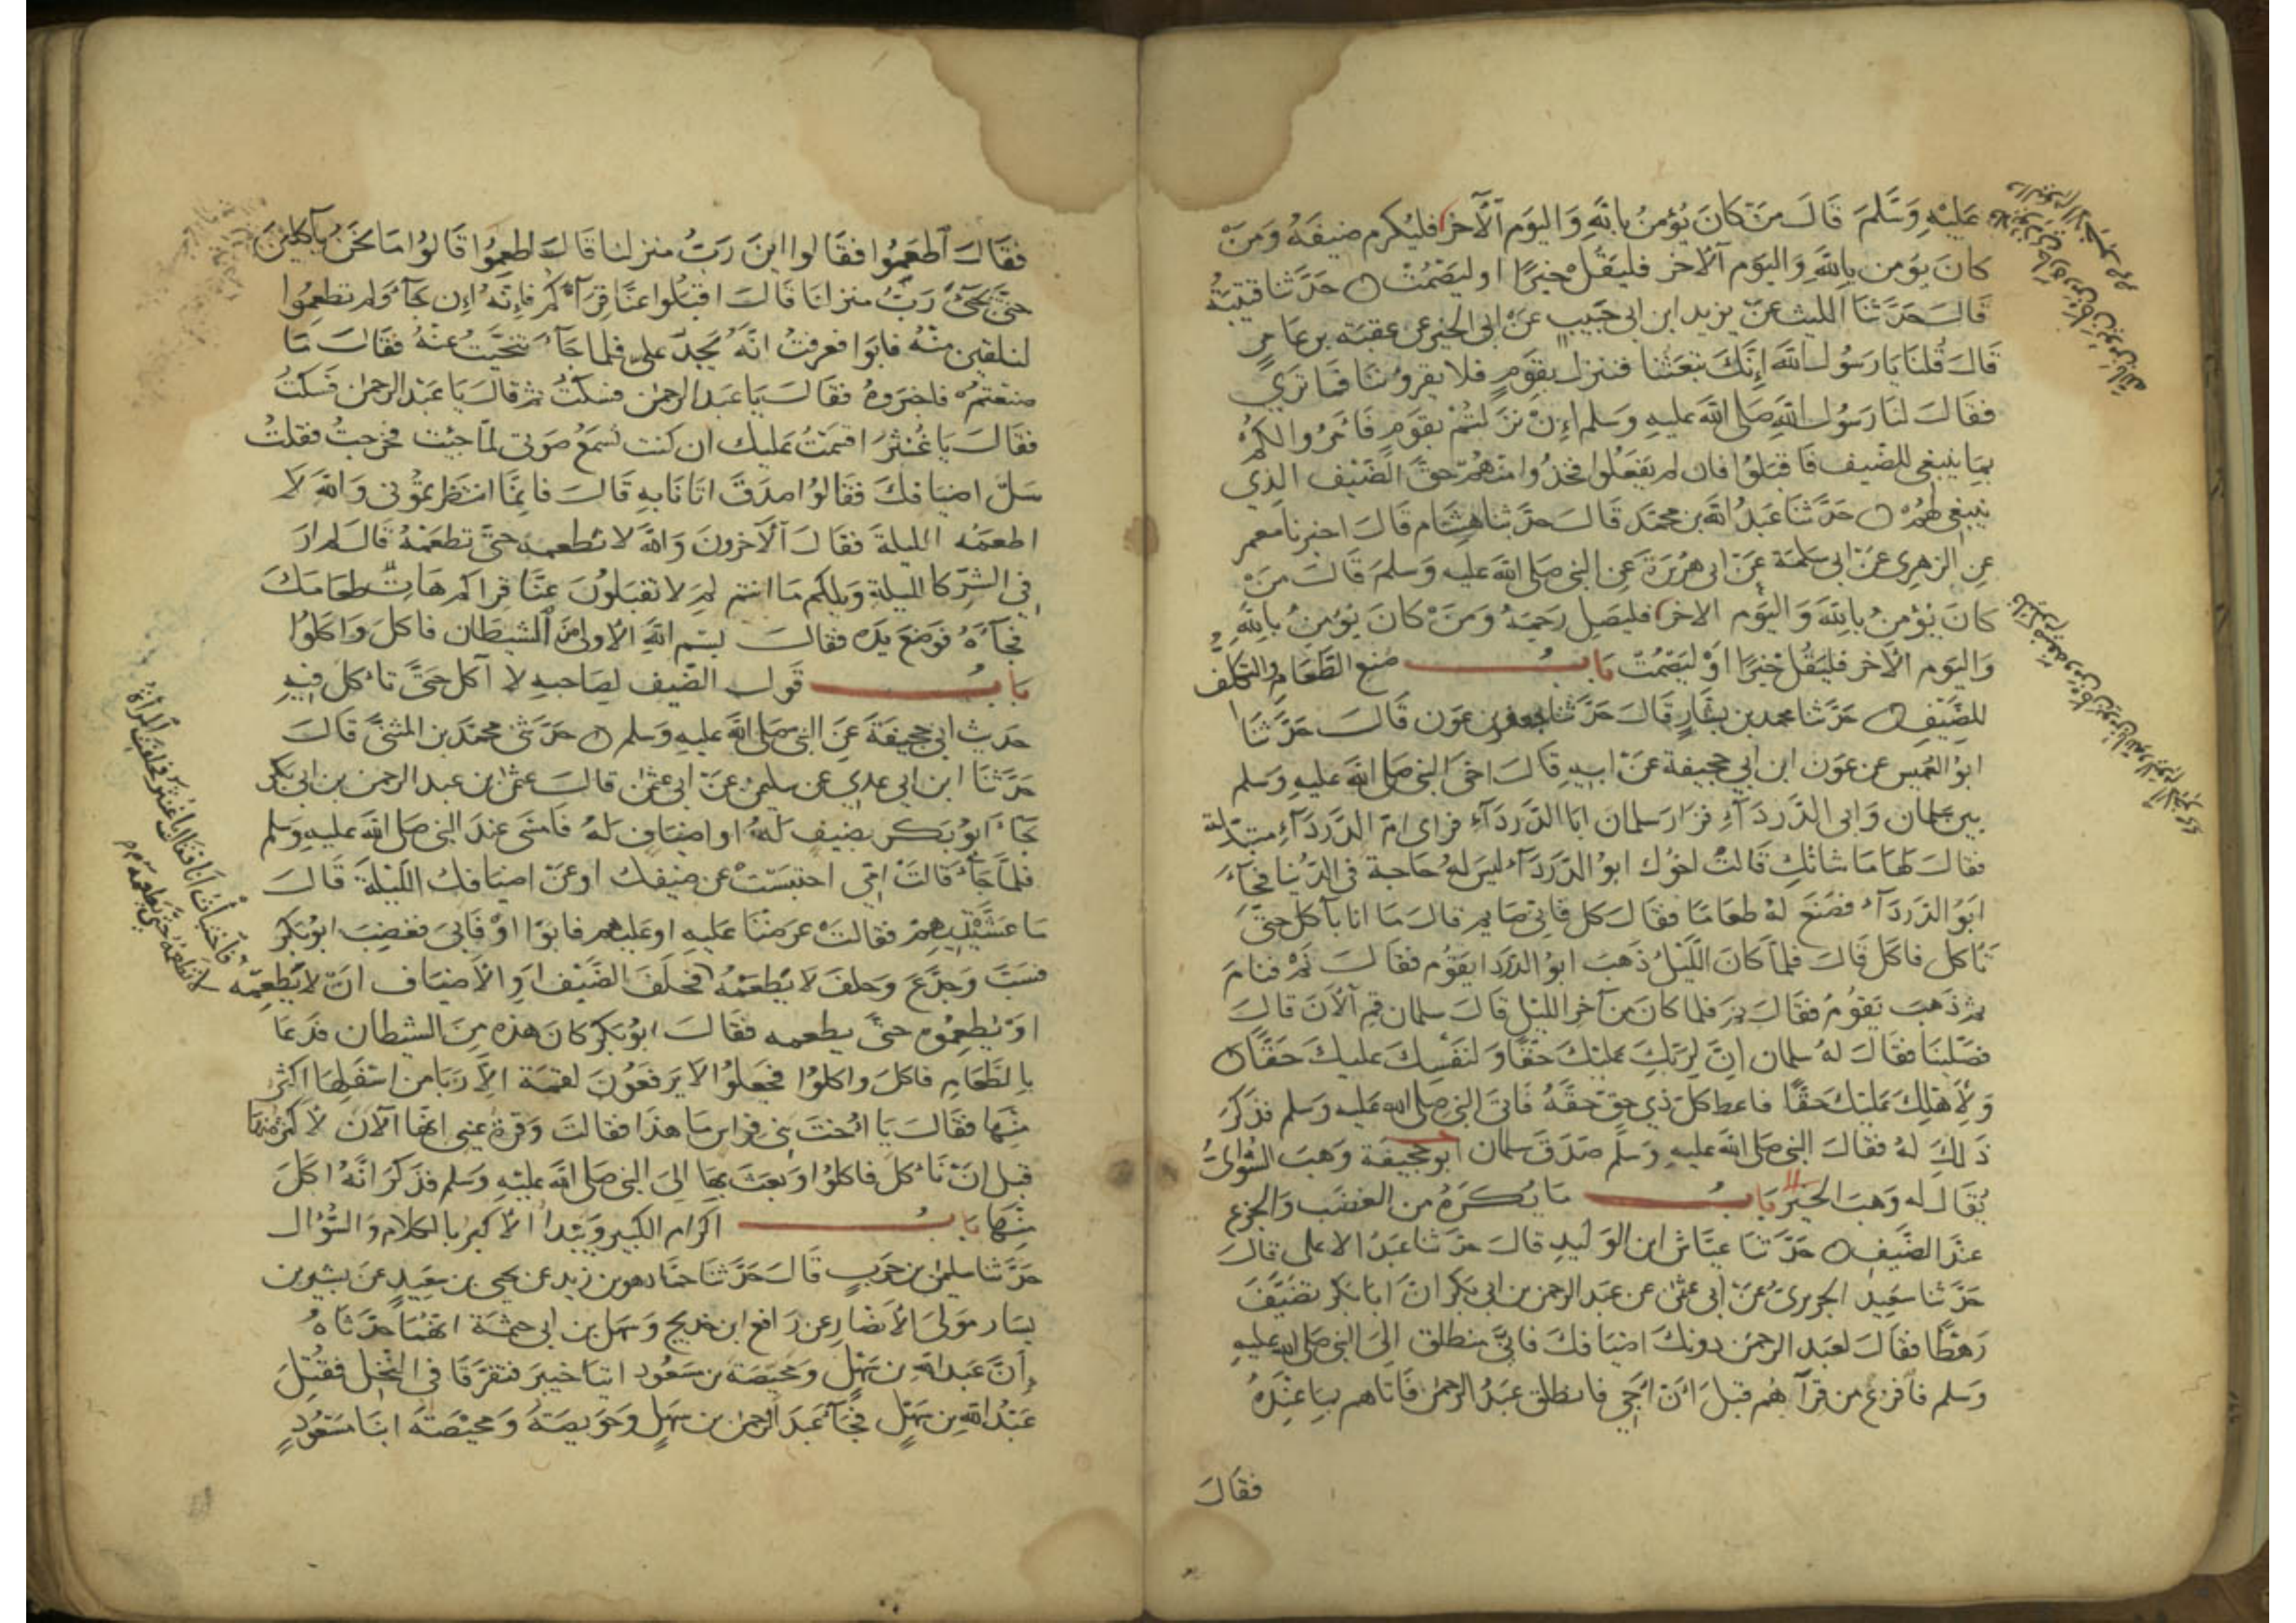 عَلَيْهِ وَسَلَّمَ قَالَ مَنْ كَانَ يُؤْمِنُ بِاللَّهِ وَاليَوْمِ الْآخِرِ فليُكرم ضيفَهُ وَمَنْ
كانَ يؤمن باللهِ وَاليَوم الآخر فليَقُلْ خَيرًا اوليَصْمُتْ ۝ حَدَّثنا قتيبَةُ
قَالَ حَدَّثَنَا الليث عَنْ يزيد ابن ابي حَبيبٍ عَنْ ابي الخير عن عقبَة بن عَامِرٍ
قَالَ قُلنَا يَا رَسُولَ اللَّهِ إِنَّكَ تبعَثنا فننزل بقَومٍ فلا يقرونَنَا فمَا تَري
فقالَ لنَا رَسُولُ اللَّهِ صَلى اللَّه عليهِ وَسَلم إِنْ نزَلتُمْ بقَومٍ فَأمَرُوا لكُمْ
بمَا ينبغي للضَّيف فَاقبَلوُا فان لم يفعَلُوا فخذُوا منْهُمْ حَقَّ الضَّيْف الذي
ينبغي لهُمْ ۝ حَدَّثنَا عَبدُ اللَّه بن محمَّد قَالَ حَدَّثنا هِشَام قَالَ اخبرنا معمر
عن الزهري عَنْ ابي سَلمَة عَنْ ابي هرَيرَة عَن النبي صَلى اللَّه عليه وَسَلمَ قَالَ مَنْ
كانَ يُؤْمنُ باللَّهِ وَاليَوم الاخر فليَصِل رَحِمَهُ وَمَنْ كَانَ يؤمنُ باللَّهِ
وَاليَوم الآخر فليَقُل خَيرًا اوْ ليَصْمُتْ بَابُ صُنع الطَّعَام وَالتكَلُّف
للضَّيْفِ ۝ حَدَّثنا محمد بن بَشَّارٍ قَالَ حَدَّثنا جعفر بن عَون قَالَ حَدَّثنَا
ابوُ العُمَيس عن عَون ابن ابي جحيفة عَنْ ابيهِ قَالَ اخَى النبي صَلى اللَّه عَليهِ وَسَلم
بين سَلمان وَابي الدَّردَآءِ فزارَ سَلمان ابَا الدَّردَآءِ فرَاى امّ الدَّردَآءِ متبذلة
فقالَ لهَا مَا شانكِ قَالتْ اخُوك ابوُ الدَّردَآء ليسَ لهُ حَاجة في الدُّنيا فجَآءَ
ابَوُ الدَّردَآء فصَنعَ لهُ طعَامًا فقَالَ كل فاني صَايم قالَ مَا انا بآكل حتَّى
تَاكل فاكل قَالَ فلمَّا كَانَ اللَّيْلُ ذَهبَ ابوُ الدَّردا يقوُم فقالَ نَمْ فنامَ
ثم ذهَبَ يَقوُمُ فقَالَ نم فلما كانَ مِنْ آخِر الليْل قَالَ سلمان قم الآنَ قالَ
فصَلَّينَا فقَالَ لهُ سلمان انَّ لِرَبّكَ عَليْكَ حقًّا وَ لنَفْسِكَ عليكَ حَقًّا ۝
وَلِأهْلِكَ عَليْكَ حَقًّا فاعط كلّ ذي حَق حَقَّهُ فَاتى النبيَ صلى الله عليه وَسَلم فذكرَ
ذَلِكَ لهُ فقَالَ النبي صَلى اللَّه عليهِ وسَلم صَدَقَ سَلمان ابوجُحَيفَة وَهبَ السُّوَائيُّ
يُقَالُ له وَهبَ الخَير بَابُ مَا يُكرَهُ من الغضَب وَالجزع
عندَ الضَّيفِ ۝ حَدَّثنَا عيَّاش ابن الوَليد قالَ حَدَّثنا عَبدُ الاعلى قالَ
حَدَّثنا سَعِيد الجريريّ عَنْ أبي عثمٰن عن عَبد الرحمن بن ابي بَكر انّ ابا بَكر تضَيَّفَ
رَهطًا فقَالَ لعَبد الرحمٰن دونكَ اضيَافكَ فاني منطلق إلىَ النبي صَلى الله عليهِ
وَسَلم فافرغ من قِرَاهُم قبلَ انْ اجِي فانطلق عَبدُ الرحمٰن فَاتاهم بمَا عنِدَهُ
فقَالَ
فقَالَ اطعَمُوا فقَالوا اينَ رَبُّ منزلنا قَالَ اطعِمُوا قَالوُا مَا نحَنُ بآكلينَ
حَتَّى يَجَئَ رَبُّ منزلنَا قَالَ اقبَلُوا عنَّا قِرَآءكُم فإِنَّهُ إِن جَآءَ وَلم تطعمُوا
لنلقين منْهُ فابَوا فعرفتُ انَّهُ يَجِدُ علي فلما جَآءَ تنحَّيتُ عنْهُ فقَالَ مَا
صَنعتمْ فاخبَروهُ فقَالَ يَا عَبدَ الرحمٰن فسَكتُّ ثم قالَ يَا عَبْد الرحمٰن فسَكتُّ
فقَالَ يَا غُنثرُ اقسَمتُ عَليك ان كنت تسمَعُ صَوتي لمَّا جئت فخرجتُ فقلتْ
سَلْ اضيَافكَ فقَالوُا صَدَقَ اتَانَا بهِ قَالَ فَانَّمَا انتظرتموُني وَاللَّهِ لَا
اطعَمُه الليلةَ فقالَ الآخَرونَ وَاللَّه لا نطعمه حتَّى تطعَمْهُ قالَ لم ارَ
في الشرّ كا الليلةِ وَيلكم مَا انتم لِمَ لا تقبَلُونَ عنَّا قراكم هَاتِ طعَامَكَ
فجَآءَهُ فوَضعَ يَدَه فقَالَ بسْم اللَّهِ الاولى منَ الشيطَان فاكلَ وَاكلُوا
بَابُ قَول الضَّيف لِصَاحبهِ لا آكل حَتَّى تاكل فيهِ
حَديث ابي جحيفَةَ عَنَ النبي صَلى اللَّه عَليهِ وَسَلم ۝ حَدَّثني محمَّد بن المثنَّى قَالَ
حَدَّثنَا ابن ابي عدي عن سليمٰن عَنْ ابي عثمٰن قالَ عثمٰن بن عبد الرحمن بن ابي بَكر
جَآءَ ابوُ بَكر بضيف لَهُ او اضيَاف لهُ فامسَى عندَ النبي صَلى الله عليهِ وَسَلم
فلمَّا جَآءَ قالتْ امّي احتبسَتْ عن ضيفك او عَنْ اضيَافكَ اللَّيْلةَ قَالَ
مَا عَشَّيْتِهِمْ فقَالتْ عَرضنَا عَليهِ او عَليهم فابَوْا اوْ فَابَى فغضِبَ ابوُ بَكر
فسَبَّ وَجدَّعَ وَحلفَ لا يَطعَمْهُ فحَلفَ الضَّيْف اوِ الاضيَاف انْ لا يَطعِمَهُ
اوْ يَطعِمُوه حتَّى يطعمه فقَالَ ابوُ بَكر كانَ هذه منَ الشيطان فدَعَا
بالطعَام فاكلَ واكلوُا فجَعلوُا لا يَرفعَوُنَ لقمَة الاَّ رَبَا من اسْفلِهَا اكثر
مِنْهَا فقَالَ يَا اختَ بَني فراس مَا هَذَا فقالتْ وَقرة عيني انهَا الآن لاكثر منها
قبل انْ نَاكل فاكلوُا وَبعَثَ بهَا الىَ النبي صَلى اللَّه عَليْهِ وَسَلم فذكرَ انَّهُ اكلَ
مِنهَا بَابُ اكرَام الكبير وَيَبْدأ الاكبر بالكلام وَالسُّؤال
حَدَّثنا سليمٰن بن حَربٍ قَالَ حَدَّثنَا حمَّاد هو بن زيد عن يحيى بن سَعِيدٍ عَنْ بشير بن
يسَار موَلى الأنصَار عن رَافع ابن خديج وَسَهل بن ابي حثمَة انَّهُمَا حَدَّثاهُ
أنَّ عَبدَ اللهِ بن سَهْل وَمحيّصَة بن مَسعُود اتيَا خيبرَ فتفرَّقَا في النَّخْل فقُتِلَ
عَبْدُ اللَّهِ بن سَهْل فجَآءَ عَبد الرحمٰن بن سَهْل وحوَيصَة وَمحيّصَة ابنَا مَسْعُودٍ
فاختبأتُ انَا فقال يا غُنثر فحلفتِ المرأةُ
لا تطعمُهُ حتَّى يطعمَه